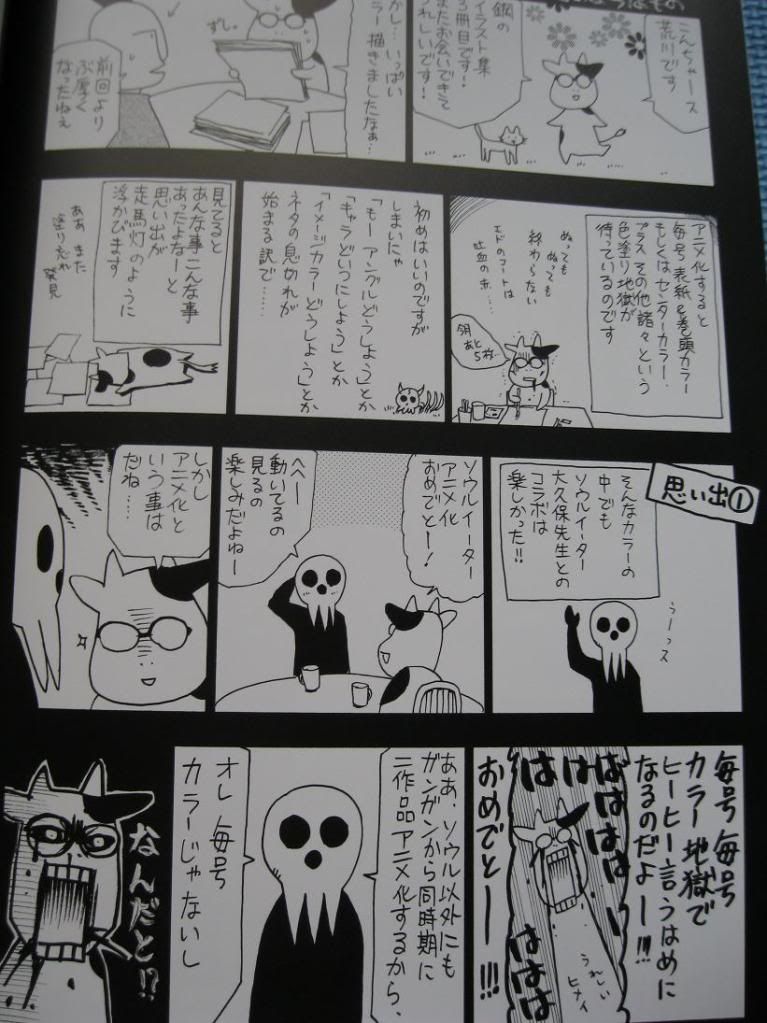 こんちゃース
荒川です
鋼の
イラスト集
3冊目です!
またお会いできて
うれしいです!
ずし。
しかし…いっぱい
カラー描きましたなぁ…
前回より
ぶ厚く
なったねぇ
アニメ化すると
毎号表紙&巻頭カラー
もしくはセンターカラー、
プラスその他諸々という
色塗り地獄が
待っているのです
ぬっても
ぬっても
終わらない
エドのコートは
吐血の赤…
鋼
あと5枚…
初めはいいのですが
しまいにゃ
「もーアングルどうしよう」とか
「キャラどいつにしよう」とか
「イメージカラーどうしよう」とか
ネタの息切れが
始まる訳で……
見てると
あんな事こんな事
あったよなーと
思い出が
走馬灯のように
浮かびます
ああまた
塗り忘れ
発見
思い出①
そんなカラーの
中でも
ソウルイーター
大久保先生との
コラボは
楽しかった!!
うーっス
ソウルイーター
アニメ化
おめでとー!
へへー
動いてるの
見るの
楽しみだよねー
しかし
アニメ化と
いう事は
だね……
毎号毎号
カラー地獄で
ヒーヒー言うはめに
なるのだよー!!!
はははは
は
は
ははは
おめでとー!!!
うれしい
ヒメイ
ああ、ソウル以外にも
ガンガンから同時期に
二作品アニメ化するから、
オレ毎号
カラーじゃないし
なんだと!?